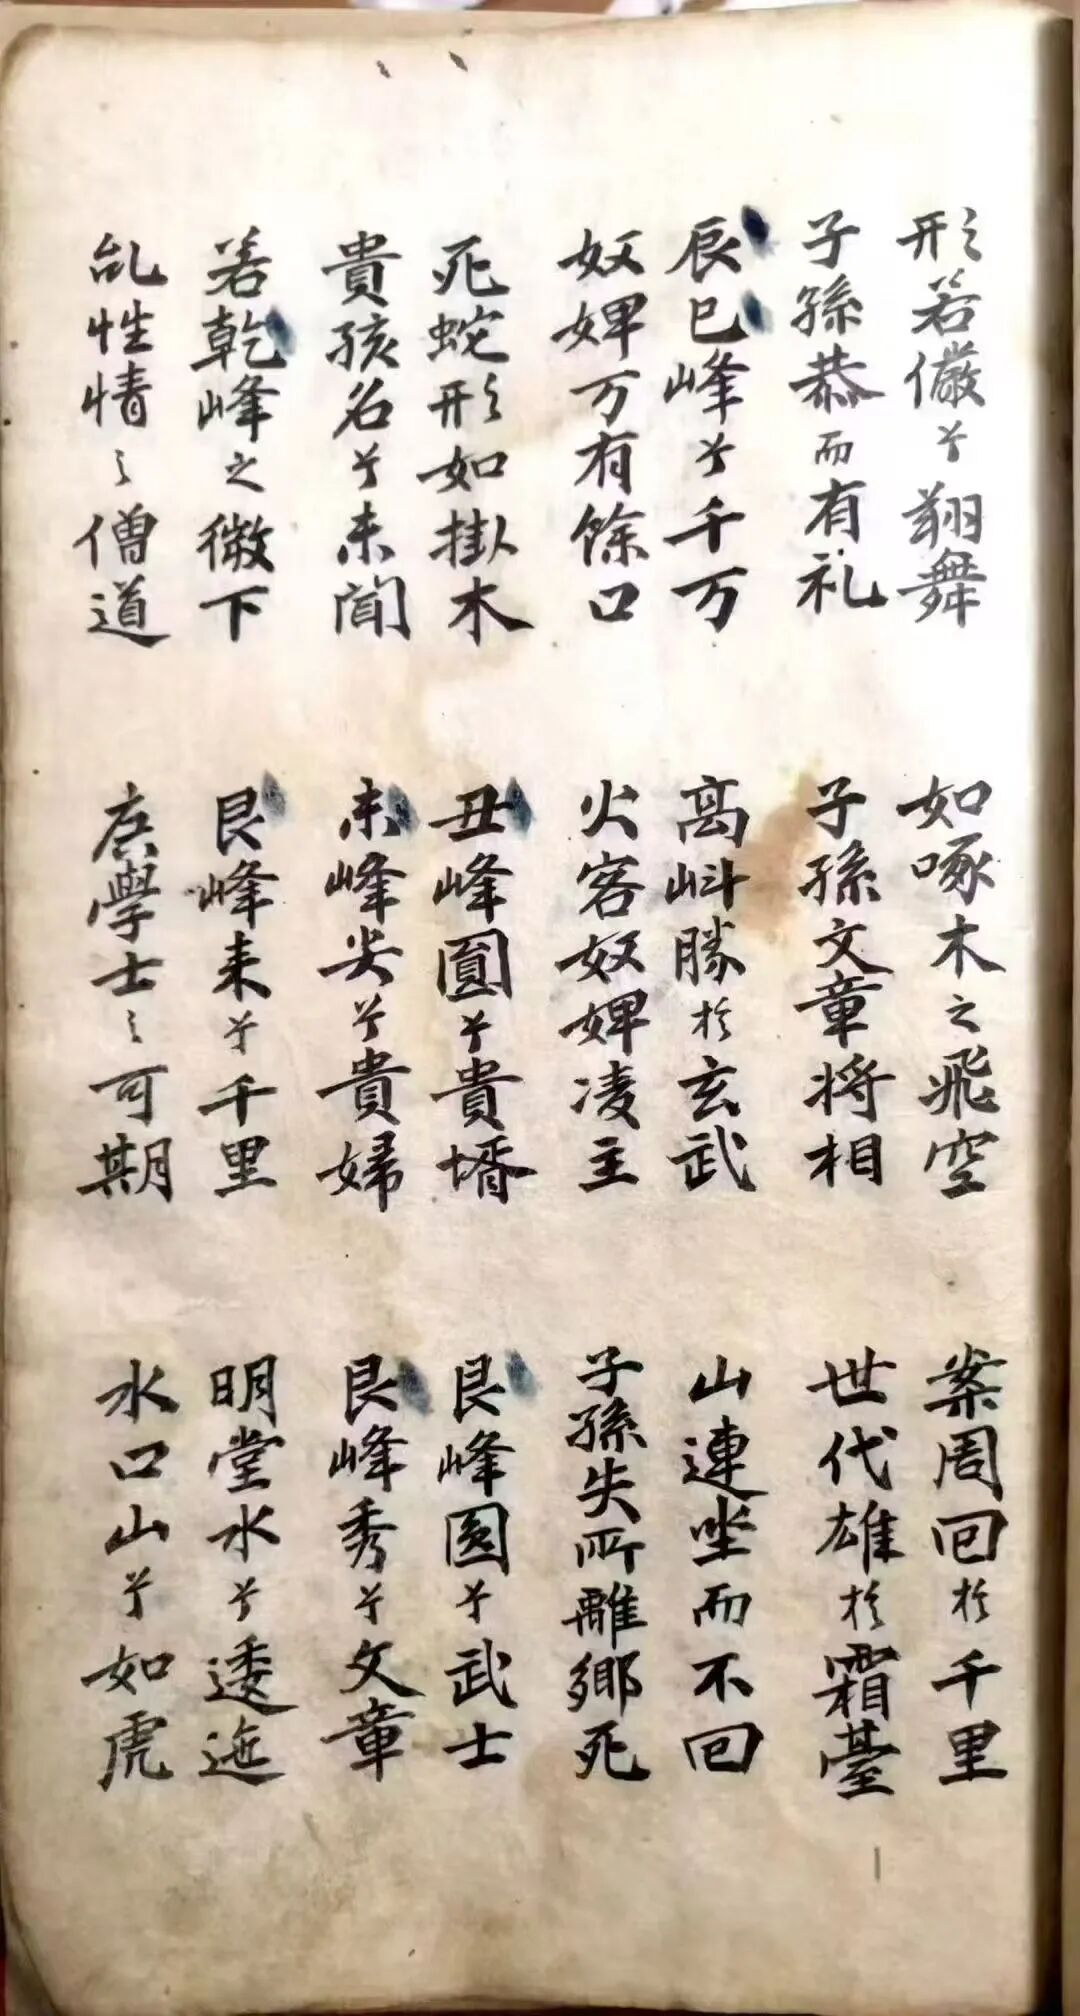 形若儼兮翔舞 如啄木之飛空 案周回於千里
子孫恭而有礼 子孫文章将相 世代雄於霜臺
辰巳峰兮千万 离㪷勝於玄武 山連坐而不回
奴婢万有餘口 火客奴婢凌主 子孫失所離鄉死
死蛇形如掛木 丑峰圓兮貴壻 艮峰圓兮武士
貴孩名兮未聞 未峰尖兮貴婦 艮峰秀兮文章
若乾峰之微下 艮峰来兮千里 明堂水兮逶迤
乱性情之僧道 庶學士之可期 水口山兮如虎